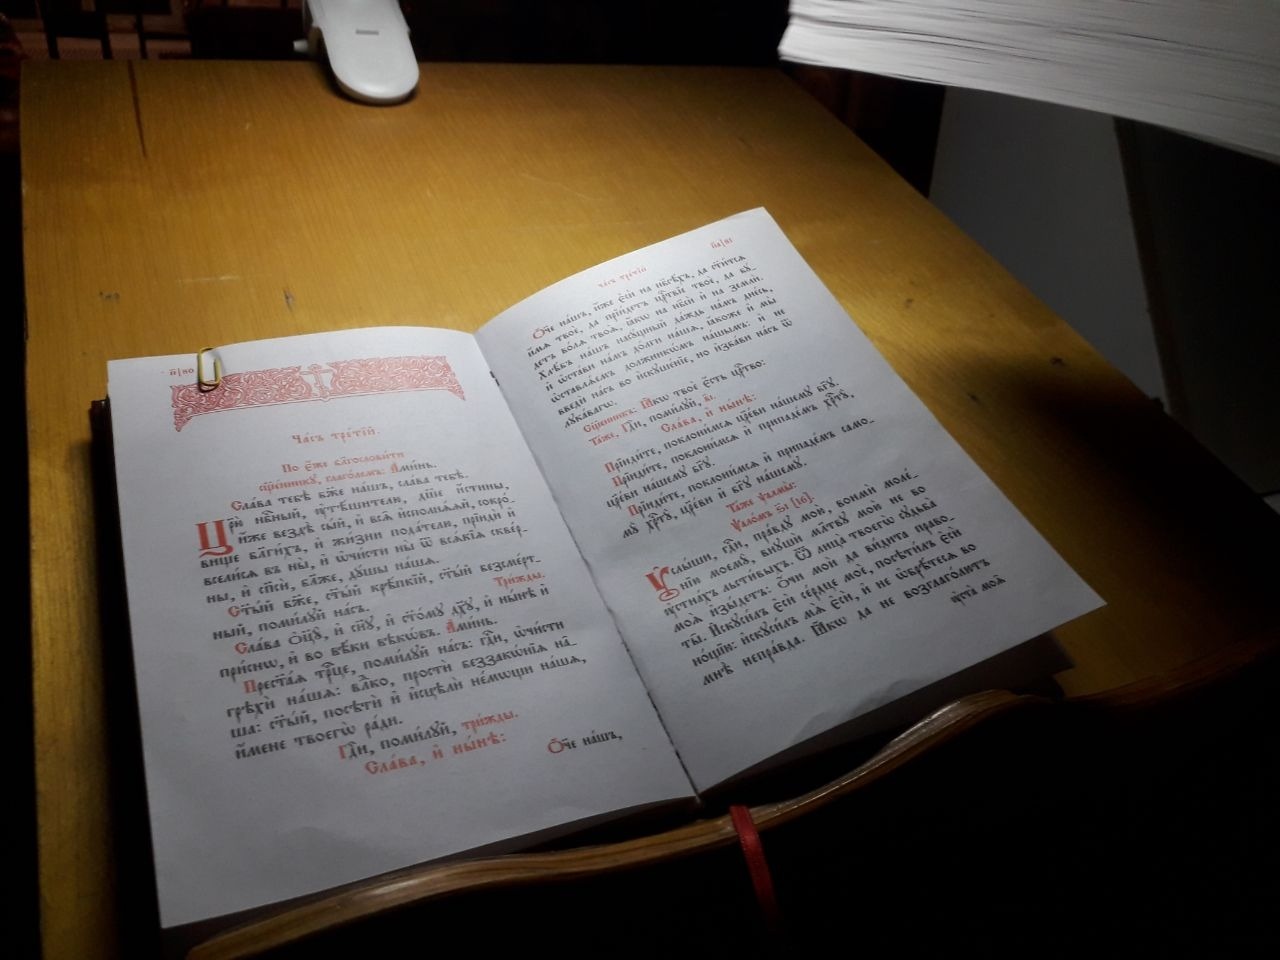 п҃|80
Ча́съ тре́тїй.
По є҆́же бл҃гослови́ти
сщ҃е́ннику, глаго́лемъ: А҆ми́нь.
Сла́ва тебѣ̀ бж҃е на́шъ, сла́ва тебѣ̀.
Цр҃ю̀ нбⷭ҇ный, ᲂу҆тѣ́шителю, дш҃е и҆́стины,
и҆́же вездѣ̀ сы́й, и҆ всѧ̑ и҆сполнѧ́ѧй, сокро́-
вище бл҃ги́хъ, и҆ жи́зни пода́телю, прїидѝ и҆
всели́сѧ въ ны̀, и҆ ѡ҆чи́сти ны̀ ѿ всѧ́кїѧ сквер-
ны, и҆ сп҃сѝ, бл҃же, дꙋ́шы на́шѧ.
Ст҃ы́й бж҃е, ст҃ы́й крѣ́пкїй, ст҃ы́й безсме́рт-
ный, поми́лꙋй на́съ. Три́жды.
Сла́ва ѻ҆ц҃ꙋ̀, и҆ сн҃ꙋ, и҆ ст҃о́мꙋ дх҃ꙋ, и҆ ны́нѣ и҆
при́снѡ, и҆ во вѣ́ки вѣкѡ́въ. А҆ми́нь.
Прест҃а́ѧ трⷪ҇це, поми́лꙋй на́съ: гдⷭ҇и, ѡ҆чи́сти
грѣхѝ на́шѧ: влⷣко, простѝ беззакѡ́нїѧ на́-
ша: ст҃ы́й, посѣтѝ и҆ и҆сцѣлѝ не́мѡщи на́шѧ,
и҆́мене твоегѡ̀ ра́ди.
Гдⷭ҇и, поми́лꙋй, три́жды.
Сла́ва, и҆ ны́нѣ:
Ѻ҆́ч҃е на́шъ,
ча́съ тре́тїй
п҃а|81
Ѻ҆́ч҃е на́шъ, и҆́же є҆сѝ на нб҃сѣ́хъ, да ст҃и́тсѧ
и҆́мѧ твоѐ, да прїи́детъ црⷭ҇твїе твоѐ, да бꙋ́-
детъ во́лѧ твоѧ̀, ꙗ҆́кѡ на нб҃сѝ и҆ на землѝ.
Хлѣ́бъ на́шъ насꙋ́щный да́ждь на́мъ дне́сь,
и҆ ѡ҆ста́ви на́мъ до́лги на́шѧ, ꙗ҆́коже и҆ мы̀
ѡ҆ставлѧ́емъ должникѡ́мъ на́шымъ: и҆ не
введѝ на́съ во и҆скꙋше́нїе, но и҆зба́ви на́съ ѿ
лꙋка́вагѡ.
Сщ҃е́нникъ: Ꙗ҆́кѡ твоѐ є҆́сть црⷭ҇тво:
Та́же, Гдⷭ҇и, поми́лꙋй, в҃і.
Сла́ва, и҆ ны́нѣ:
Прїиди́те, поклони́мсѧ цр҃е́ви на́шемꙋ бг҃ꙋ.
Прїиди́те, поклони́мсѧ и҆ припаде́мъ хрⷭ҇тꙋ̀,
цр҃е́ви на́шемꙋ бг҃ꙋ.
Прїиди́те, поклони́мсѧ и҆ припаде́мъ само-
мꙋ̀ хрⷭ҇тꙋ̀, цр҃е́ви и҆ бг҃ꙋ на́шемꙋ.
Та́же ѱалмы̀:
Ѱало́мъ ѕ҃і [16].
Оу҆слы́ши, гдⷭ҇и, пра́вдꙋ мою̀, вонмѝ моле́-
нїю моемꙋ̀, внꙋшѝ мл҃твꙋ мою̀ не во
ᲂу҆стна́хъ льсти́выхъ. Ѿ лица̀ твоегѡ̀ сꙋдьба̀
моѧ̀ и҆зы́детъ: ѻ҆́чи моѝ да ви́дита право-
ты̑. И҆скꙋси́лъ є҆сѝ се́рдце моѐ, посѣти́лъ є҆сѝ
но́щїю: и҆скꙋси́лъ мѧ̀ є҆сѝ, и҆ не ѡ҆брѣ́тесѧ во
мнѣ̀ непра́вда. Ꙗ҆́кѡ да не возглаго́лютъ
ᲂу҆ста̀ моѧ̑